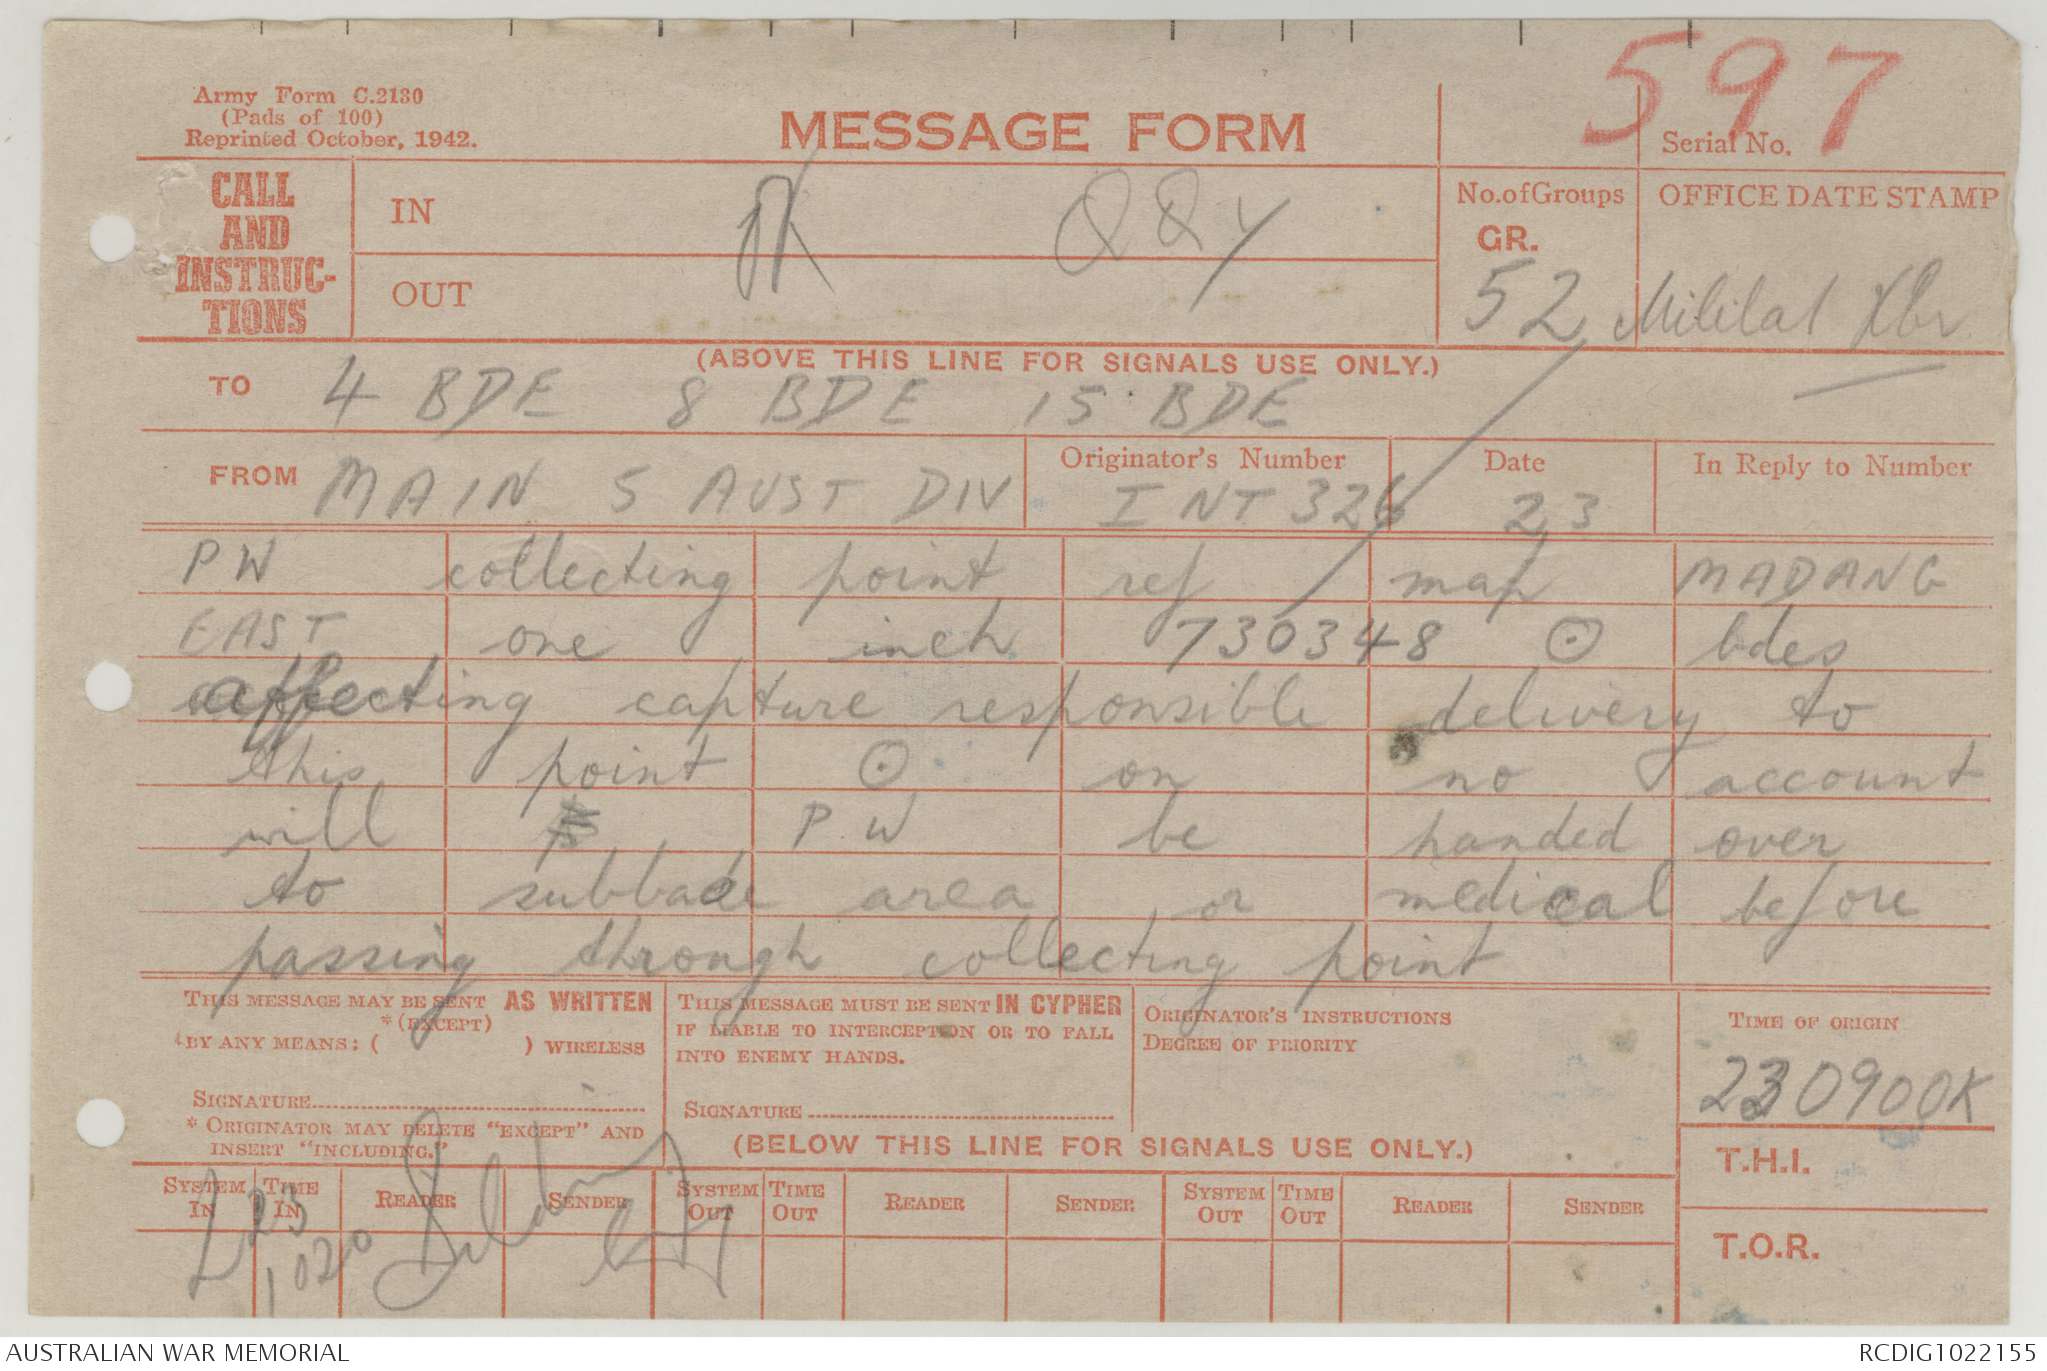 597
Army Form C.2130
(Pads of 100)
Reprinted October, 1942.
MESSAGE FORM
Serial No.
CALL
AND
INSTRUC-
TIONS
IN
OUT
QQY
No. of Groups
GR.
52
OFFICE DATE STAMP
(ABOVE THIS LINE FOR SIGNALS USE ONLY.)
TO 4 BDE 8 BDE 15 BDE
FROM MAIN 5 AUST DIV
Originator's Number
INT 326
Date
23
In Reply to Number
PW collecting point ref map MADANG
EAST one inch 730348 ⊙ bdes
affecting capture responsible delivery to
this point ⊙ on no account
will PW be handed over
to subbase area or medical before
passing through collecting point
THIS MESSAGE MAY BE SENT AS WRITTEN
*(EXCEPT)
BY ANY MEANS; ( ) WIRELESS
SIGNATURE
* ORIGINATOR MAY DELETE "EXCEPT" AND
INSERT "INCLUDING."
THIS MESSAGE MUST BE SENT IN CYPHER
IF LIABLE TO INTERCEPTION OR TO FALL
INTO ENEMY HANDS.
SIGNATURE
ORIGINATOR'S INSTRUCTIONS
DEGREE OF PRIORITY
TIME OF ORIGIN
230900K
(BELOW THIS LINE FOR SIGNALS USE ONLY.)
T.H.I.
T.O.R.
SYSTEM IN TIME IN READER SENDER SYSTEM OUT TIME OUT READER SENDER SYSTEM OUT TIME OUT READER SENDER
L 23
1020
AUSTRALIAN WAR MEMORIAL
RCDIG1022155